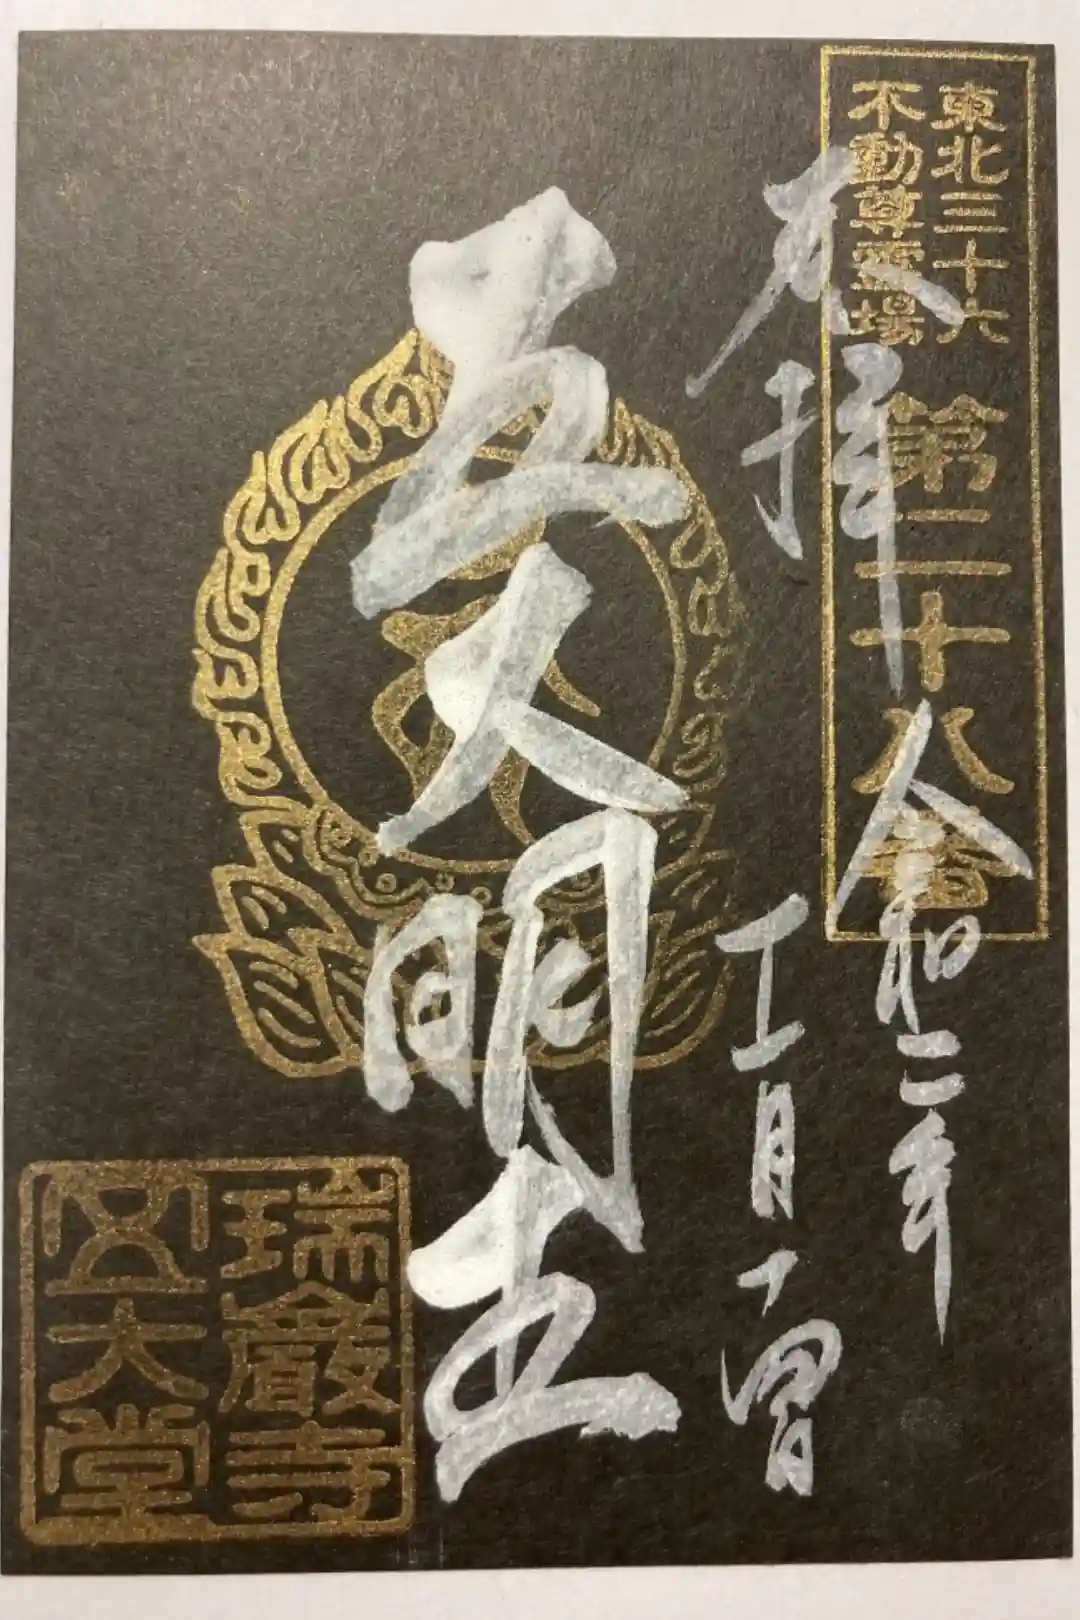 東北三十六
不動尊霊場
第二十八番
奉拝
令和二年
月十四日
五大明王
瑞巌寺
五大堂